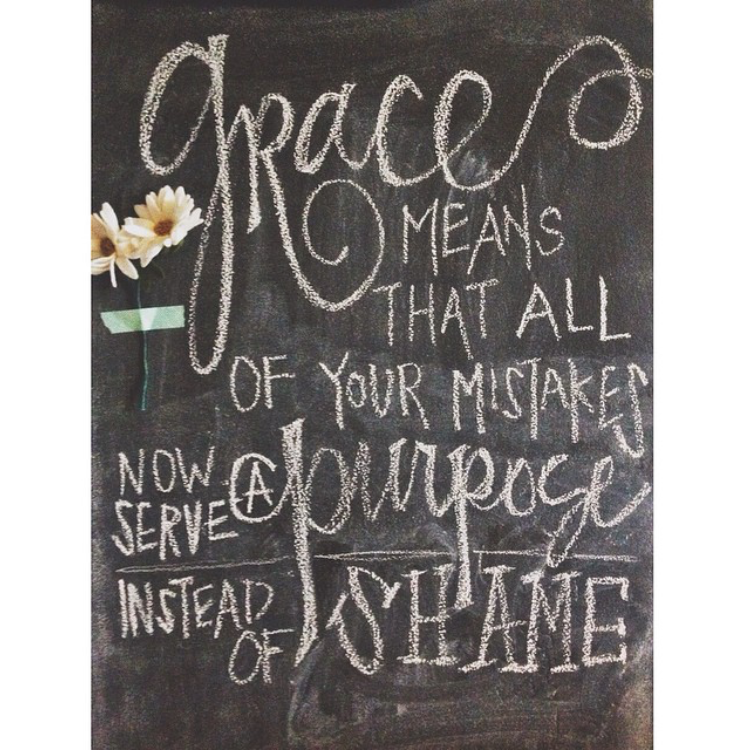 grace
MEANS
THAT ALL
OF YOUR MISTAKES
NOW SERVE A purpose
INSTEAD OF SHAME